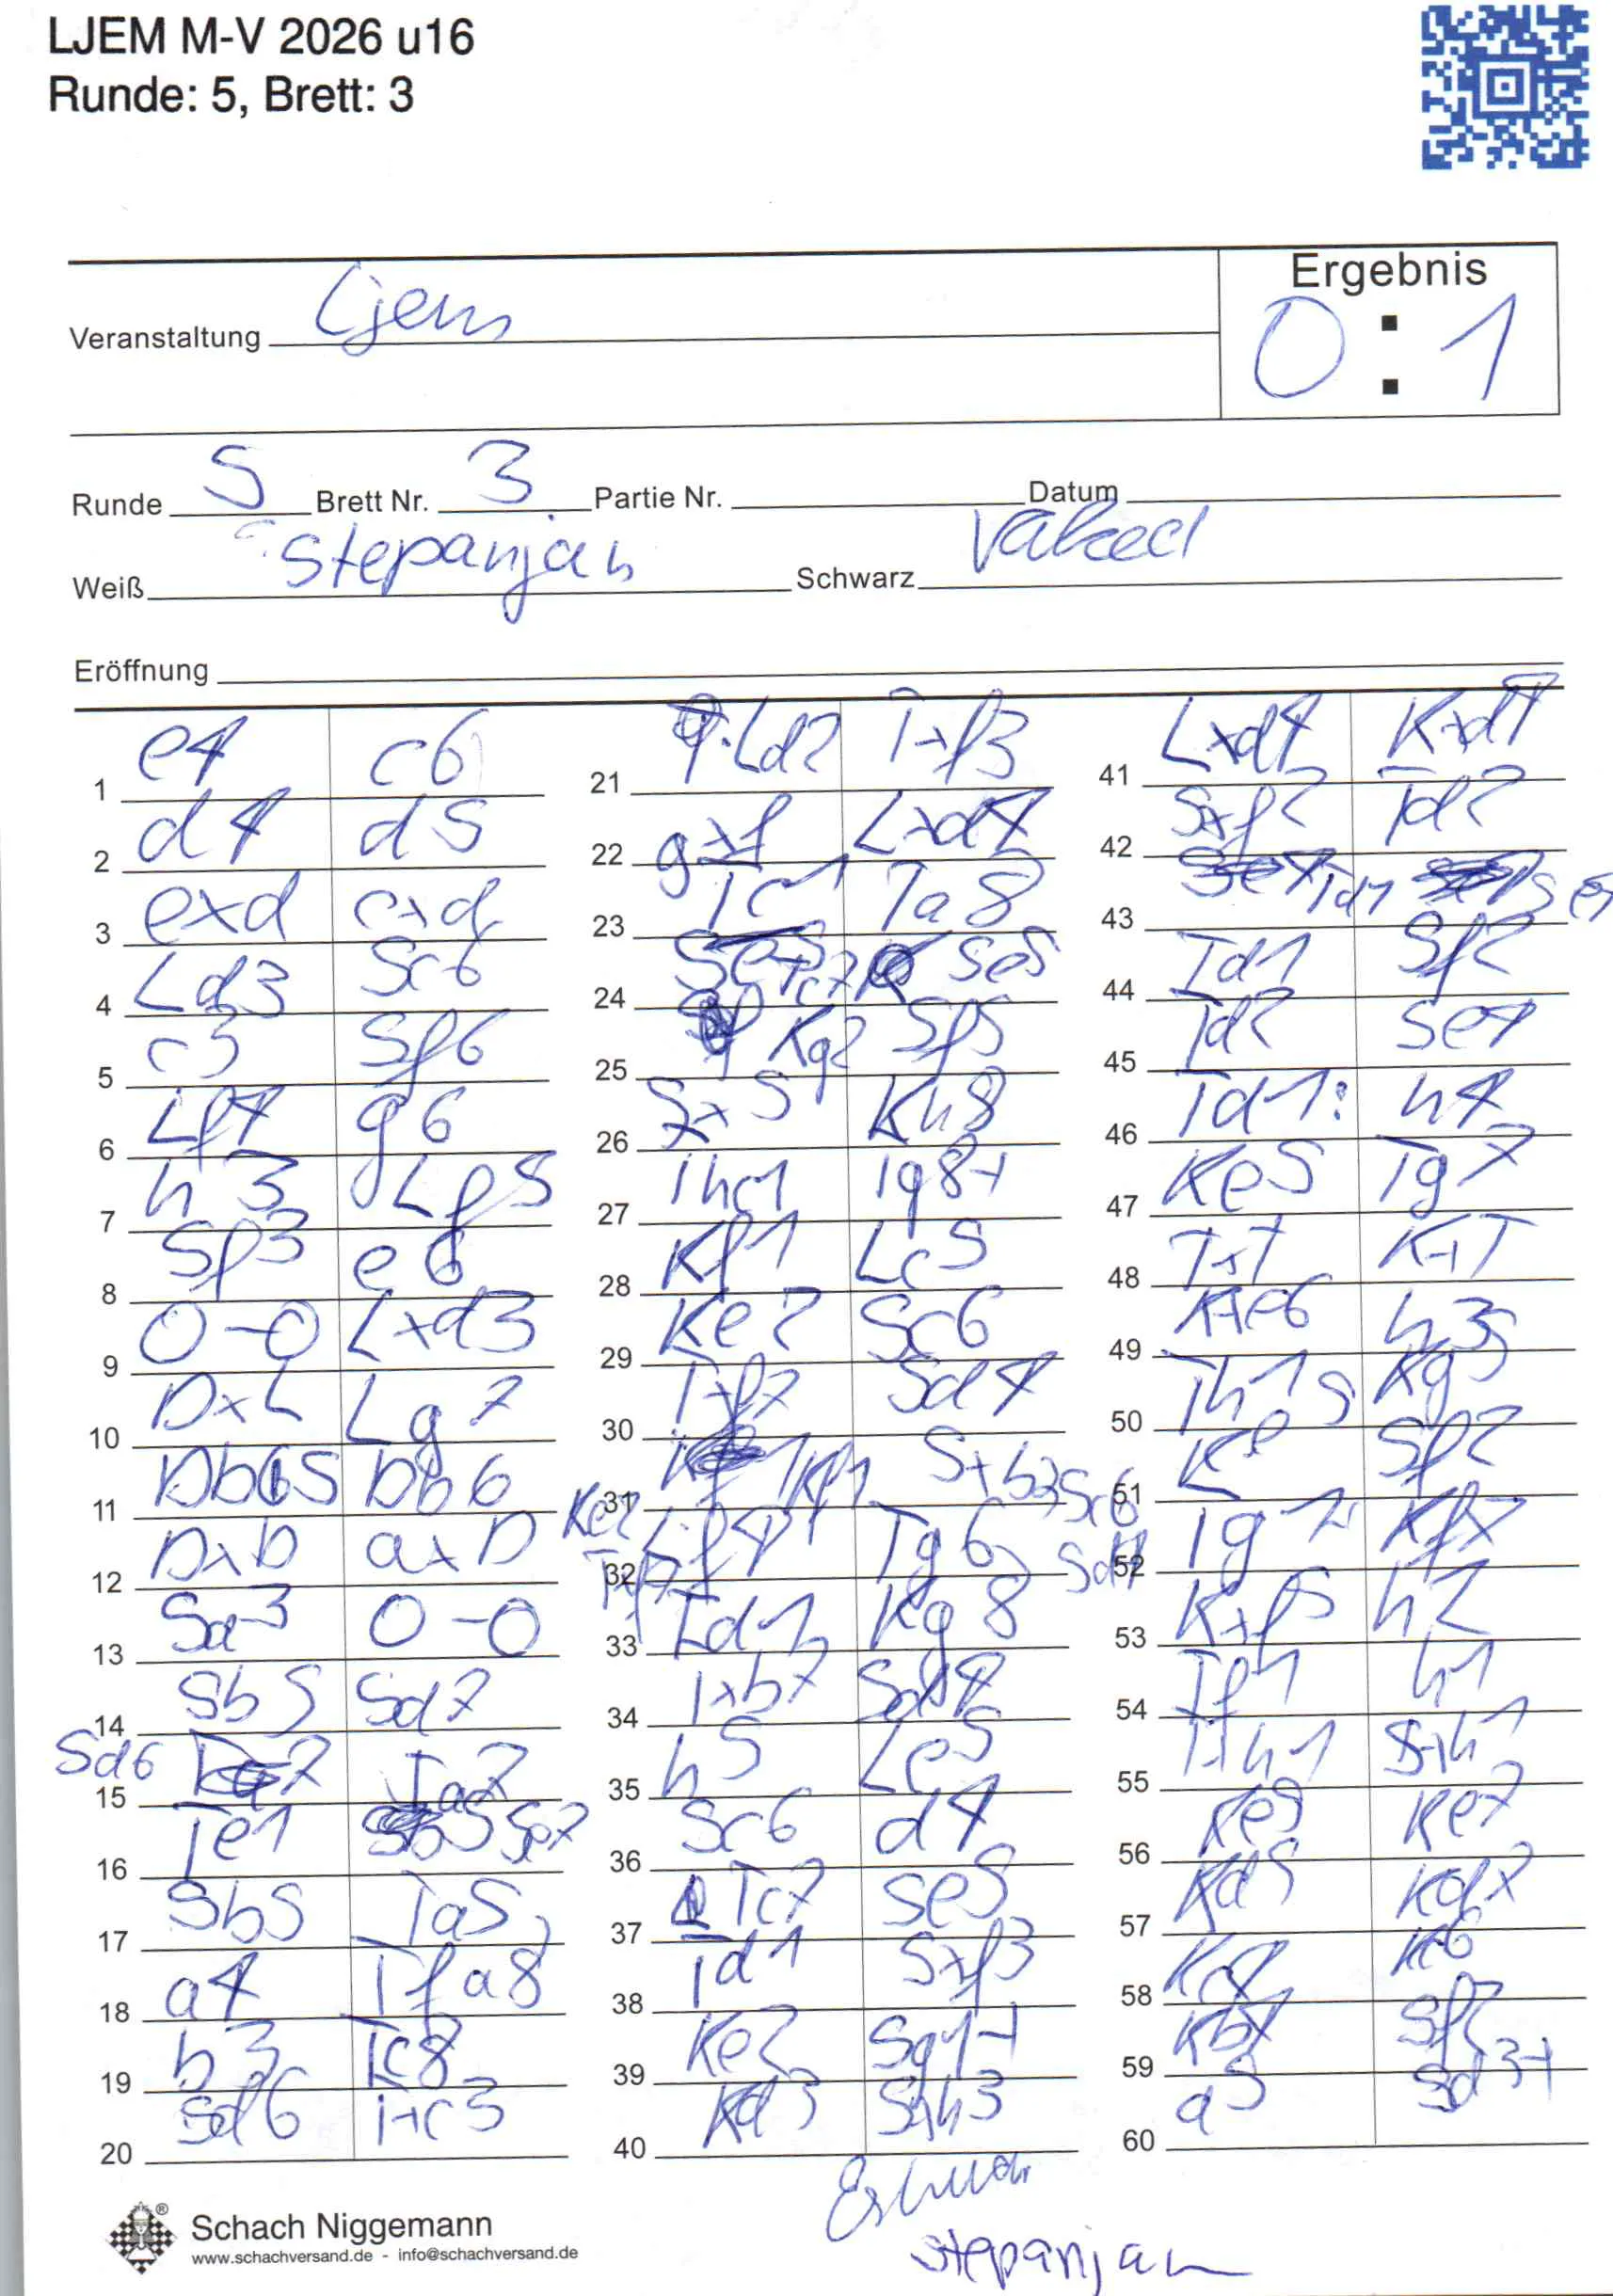 LJEM M-V 2026 u16
Runde: 5, Brett: 3
Ergebnis
Veranstaltung Ljem 0 : 1
Runde 5 Brett Nr. 3 Partie Nr. Datum
Weiß Stepanjan Schwarz
Eröffnung
1 e4 c6
2 d4 d5
3 exd cxd
4 Ld3 Sc6
5 c3 Sf6
6 Lf4 g6
7 h3 Lf5
8 Sf3 e6
9 0-0 Lxd3
10 DxL Lg7
11 Db5 Db6
12 Dxb axD
13 Sa3 0-0
14 Sb5 Sd7
15 Sd6 Ta7
16 Te1 Se7
17 Sb5 Ta5
18 a4 Tfa8
19 b3 Tc8
20 Sd6 Txc3
21 Ld2 Txf3
22 gxf Lxd4
23 Tc1 Ta8
24 Tc7 Se5
25 Kg2 Sf5
26 SxS Kh8
27 Thc1 Tg8+
28 Kf1 Lc5
29 Ke2 Sc6
30 Txf7 Sd4
31 Kf1 Sxb3 Sc6
32 Ke2 Lf4 Tg6 Sd4
33 Td1 Kg8
34 Txb7 Sd4
35 h5 Le5
36 Sc6 d4
37 Tc7 Se5
38 Td1 Sxf3
39 Ke2 Sg1+
40 Kd3 Sxh3
41 Lxd4 Kxd4
42 Sxf2 Td2
43 Td1 Se4
44 Td1 Sf2
45 Td2 Se4
46 Td1: h4
47 Ke5 Tg7
48 TxT KxT
49 Kxe6 h3
50 Th1 Kg5
51 Ke5 Sf2
52 Tg1 Kf7
53 Kxf5 h2
54 Tf1 h1
55 Txh1 Sxh1
56 Ke5 Ke7
57 Kd5 Kd7
58 K6
59 Kb4 Sf2
60 a5 Sd3+
Schach Niggemann
www.schachversand.de - info@schachversand.de
Stepanjan